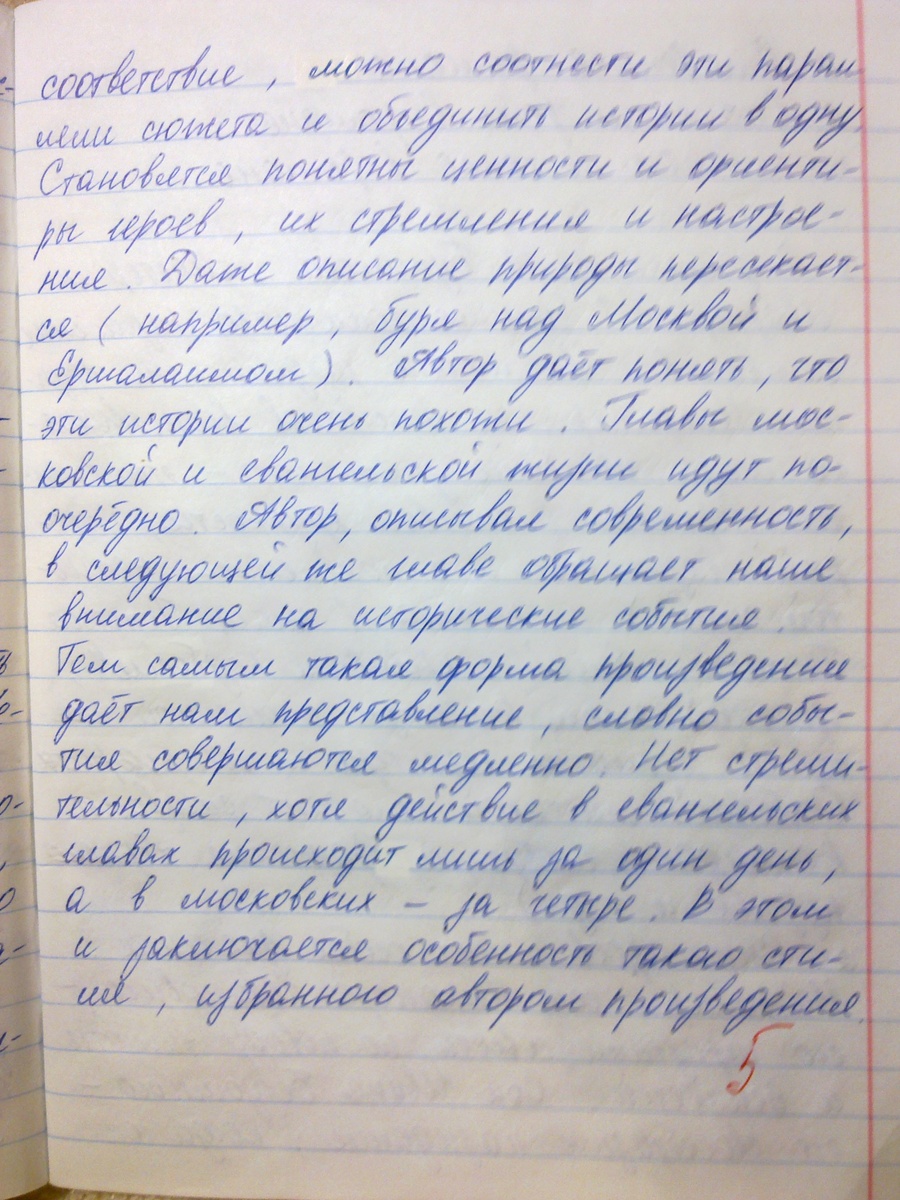 соответствие, можно соотнести эти парал
лели сюжета и объединить истории в одну.
Становятся понятны ценности и ориенти-
ры героев, их стремления и настрое-
ния. Даже описание природы пересекает-
ся (например, буря над Москвой и
Ершалаимом). Автор даёт понять, что
эти истории очень похожи. Главы мос-
ковской и евангельской жизни идут по-
очерёдно. Автор, описывая современность,
в следующей же главе обращает наше
внимание на исторические события.
Тем самым такая форма произведения
даёт нам представление, словно собы-
тия совершаются медленно. Нет стреми-
тельности, хотя действие в евангельских
главах происходит лишь за один день,
а в московских – за четыре. В этом
и заключается особенность такого сти-
ля, избранного автором произведения.
5